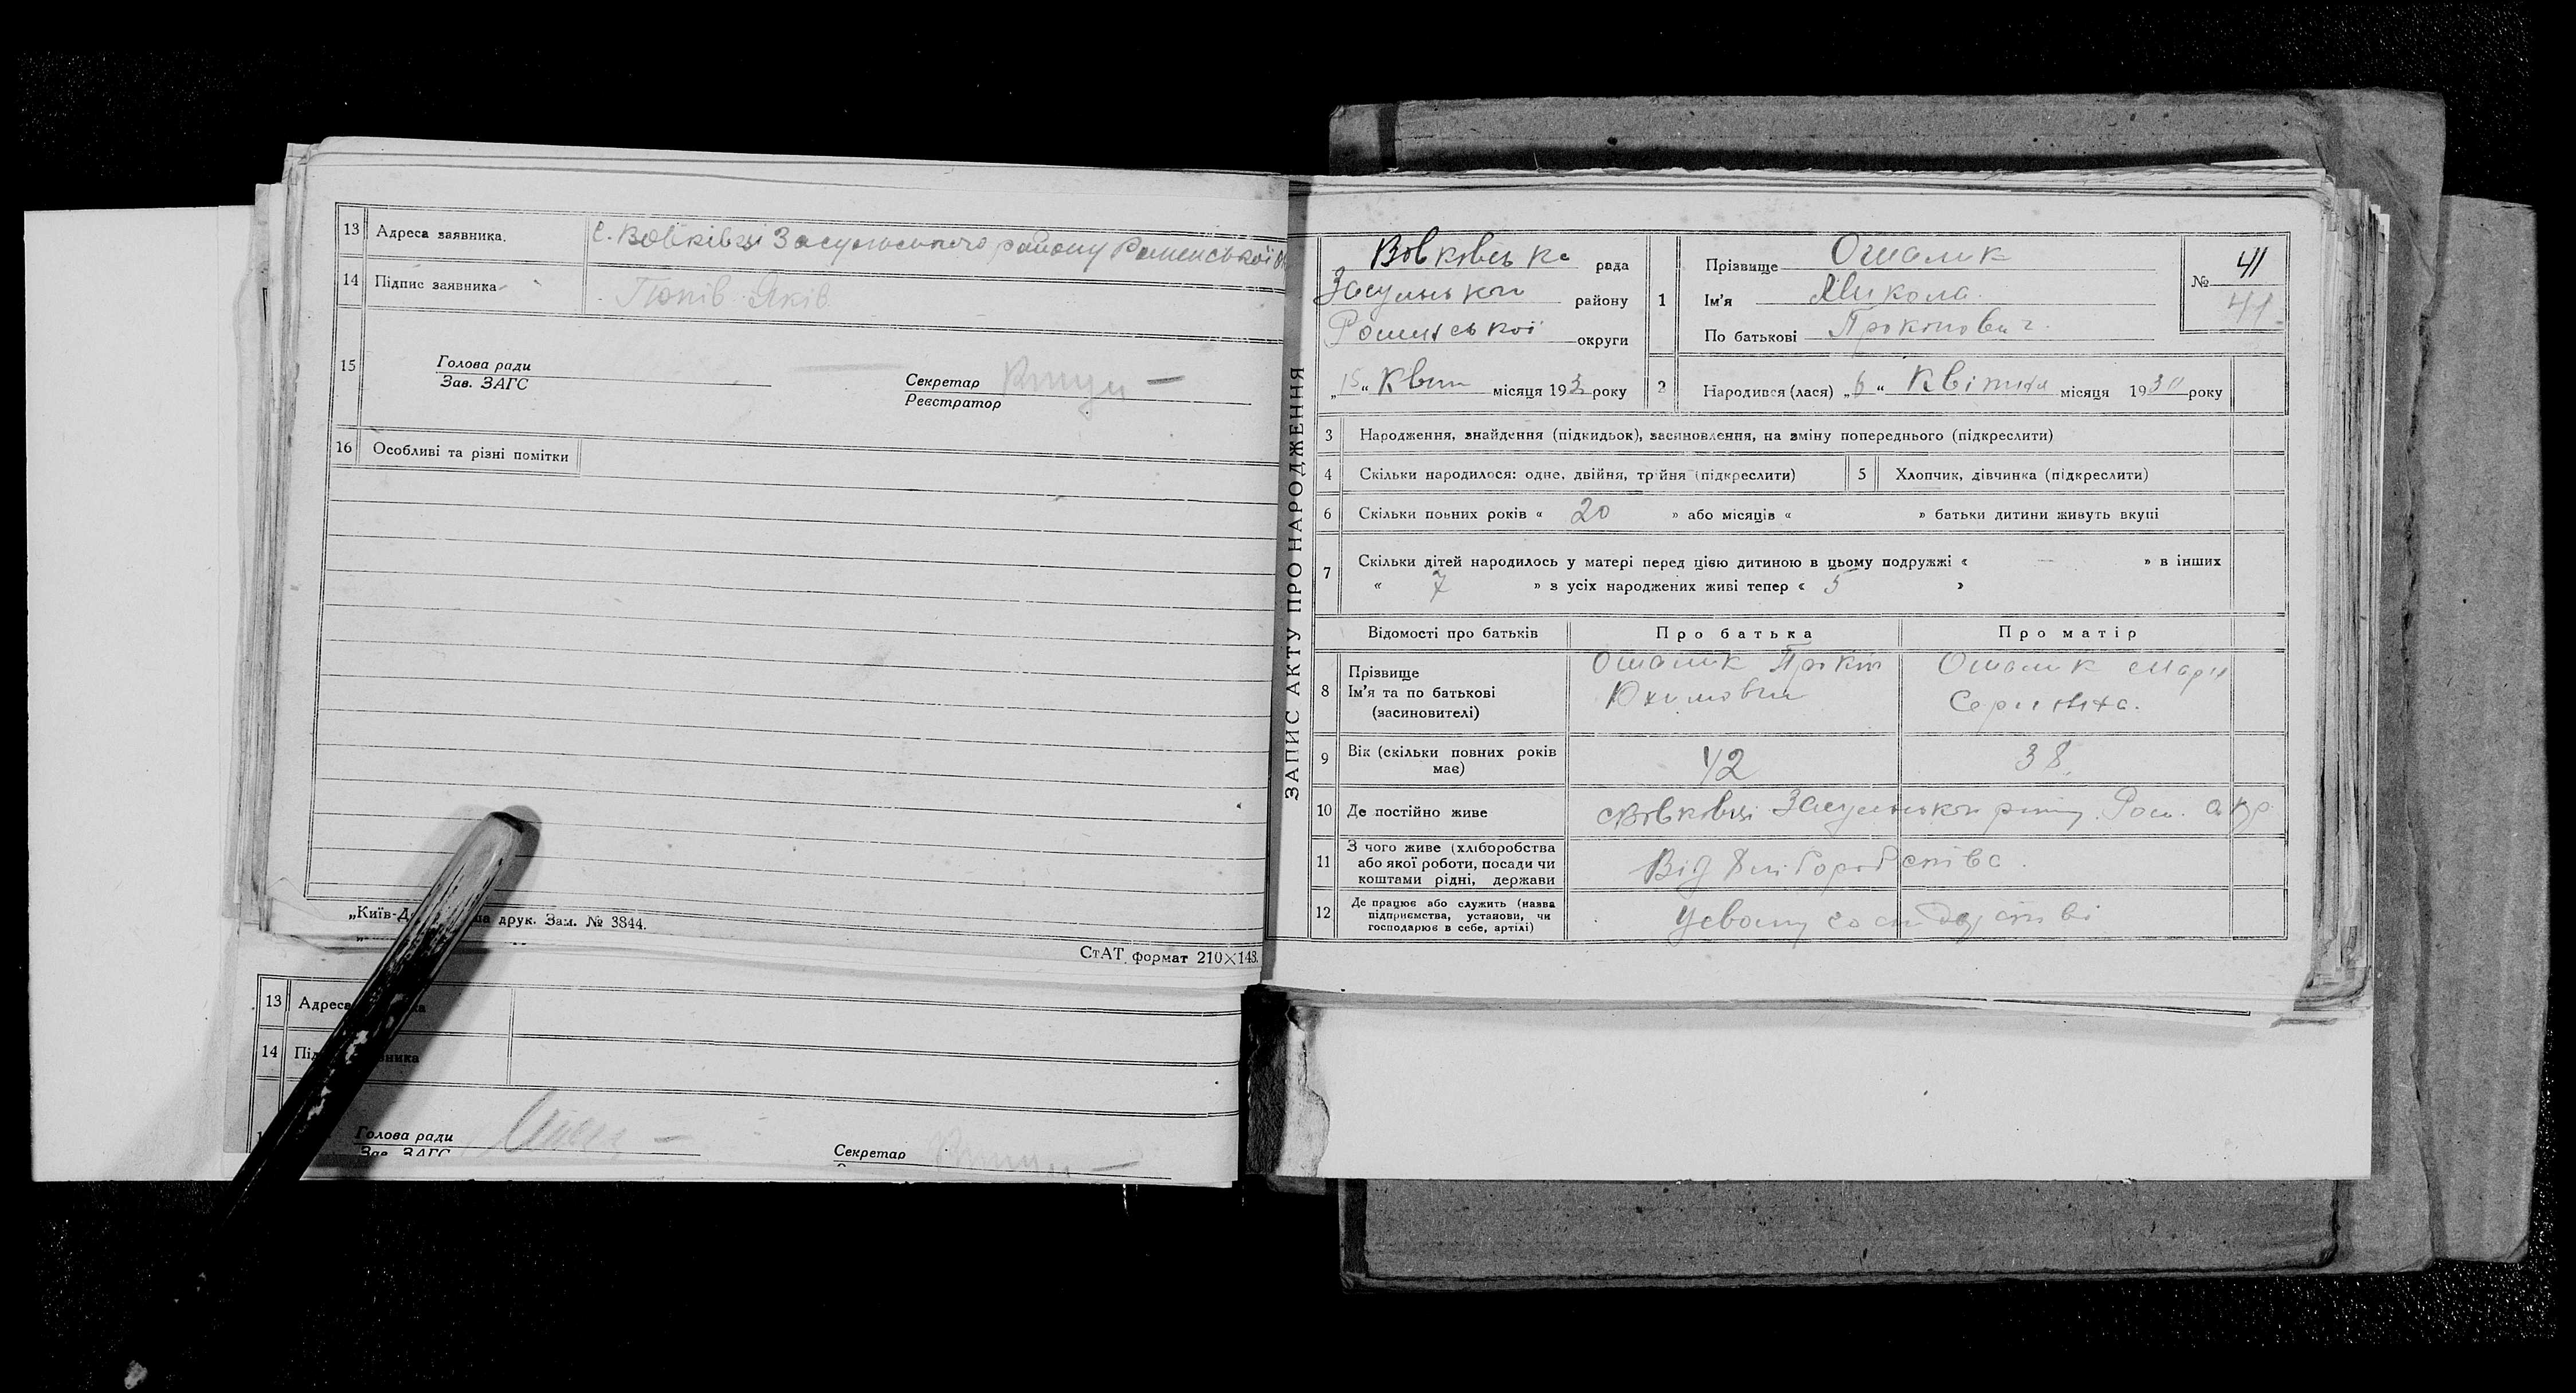 13 Адреса заявника. с. Вовківці Засульського району Роменської
14 Підпис заявника Яків
15 Голова ради
Зав. ЗАГС
Секретар
Реєстратор
16 Особливі та різні помітки
„Київ-Д друк. Зам. № 3844.
СтАТ. формат 210×143.
13 Адреса
14
Голова ради
Зав. ЗАГС
Секретар
ЗАПИС АКТУ ПРО НАРОДЖЕННЯ
Вовківська рада
Засульського району
Роменської округи
„15“ Квіт місяця 193 року
1 Прізвище
Ім'я Микола
По батькові Прокопович
№ 41
41
2 Народився (лася) „6“ Квітня місяця 1930 року
3 Народження, знайдення (підкидьок), засиновлення, на зміну попереднього (підкреслити)
4 Скільки народилося: одне, двійня, трійня (підкреслити)
5 Хлопчик, дівчинка (підкреслити)
6 Скільки повних років « 20 » або місяців « » батьки дитини живуть вкупі
7 Скільки дітей народилось у матері перед цією дитиною в цьому подружжі « — » в інших
« 7 » з усіх народжених живі тепер « 5 »
Відомості про батьків Про батька Про матір
8 Прізвище
Ім'я та по батькові
(засиновителі)
Прокіп
Юхимович
Марія
Сергіївна.
9 Вік (скільки повних років
має)
42 38
10 Де постійно живе с Вовківці Засульського Ром. окр.
11 З чого живе (хліборобства
або якої роботи, посади чи
коштами рідні, держави
Від хліборобства.
12 Де працює або служить (назва
підприємства, установи, чи
господарює в себе, артілі)
У своєму господарстві